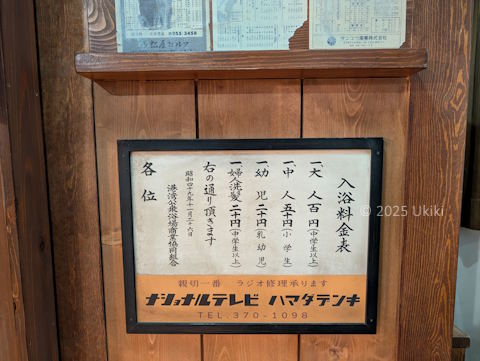 入浴料金表
一、大人 百円(中学生以上)
一、中人 五十円(小学生)
一、幼児 二十円(乳幼児)
一、婦人洗髪 二十円(中学生以上)
右の通り頂きます
昭和四十九年十一月二十六日
港湾公衆浴場商業協同組合
各位
親切一番 ラジオ修理承ります
ナショナルテレビ ハマダデンキ
TEL.370-1098
© 2025 Ukiki